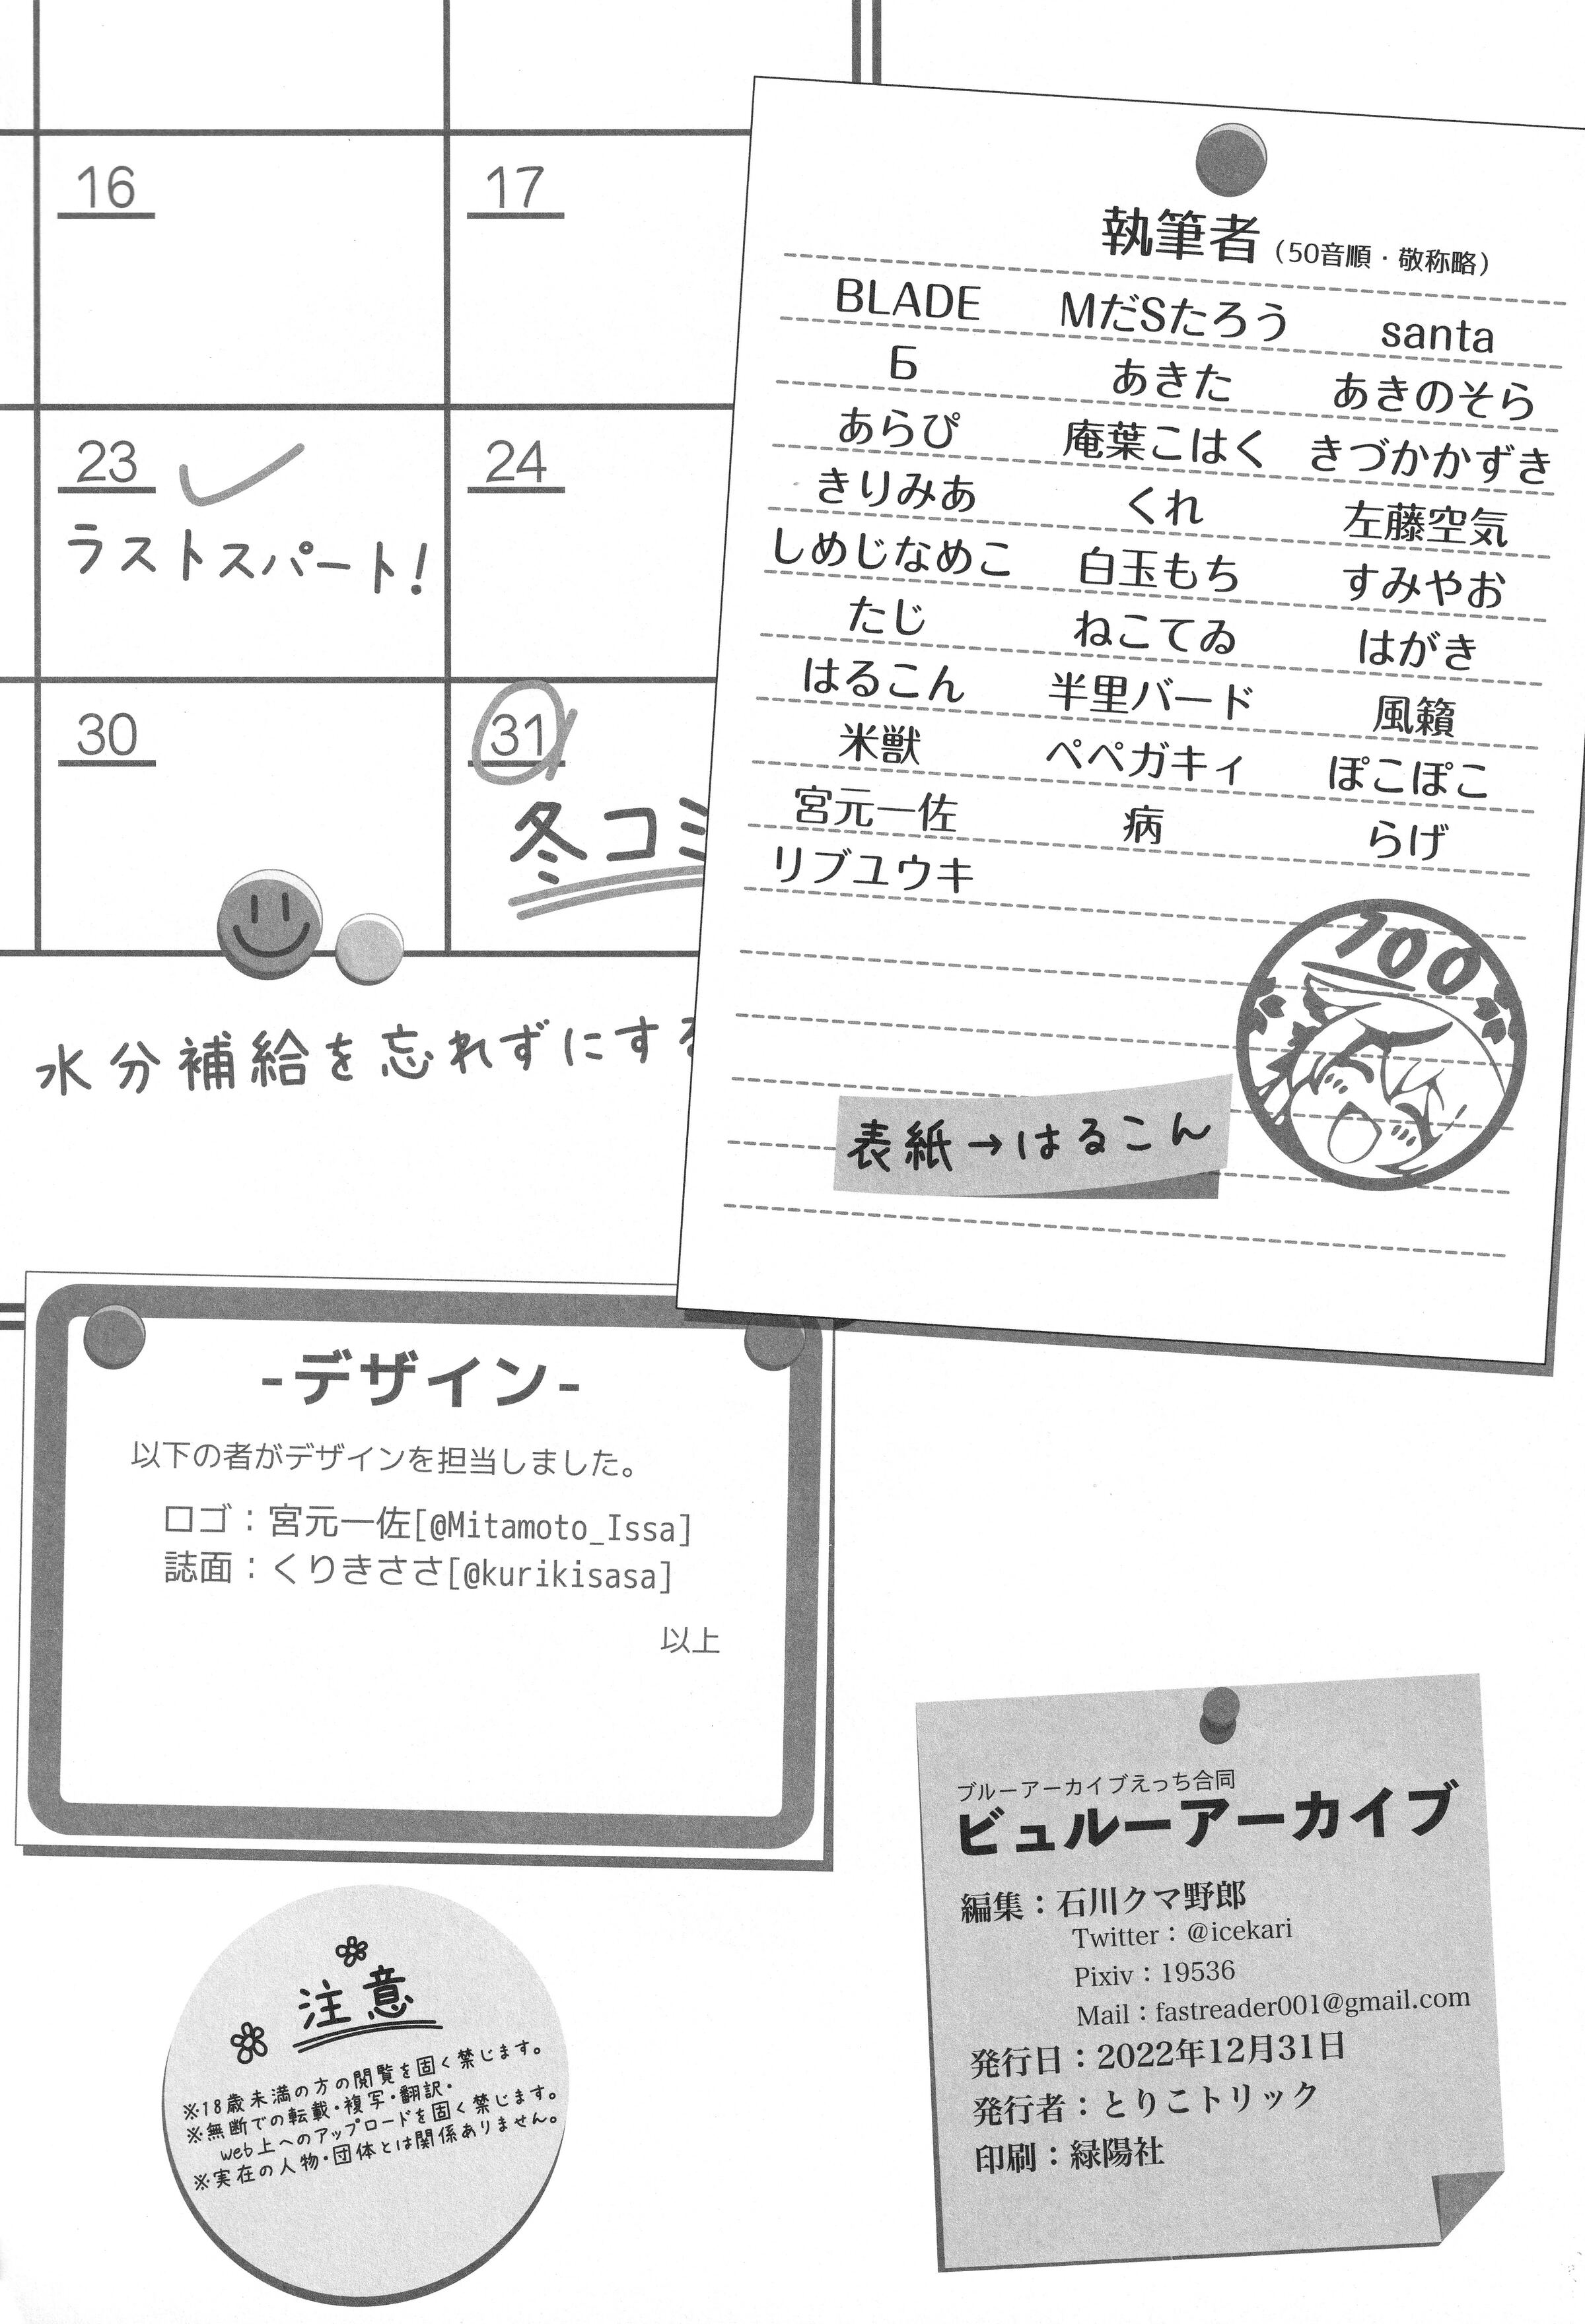 16
17
23
24
ラストスパート!
30
31
冬コミ
水分補給を忘れずにする
執筆者(50音順・敬称略)
BLADE MだSたろう santa
Б あきた あきのそら
あらぴ 庵葉こはく きづかかずき
きりみあ くれ 左藤空気
しめじなめこ 白玉もち すみやお
たじ ねこてゐ はがき
はるこん 半里バード 風籟
米獣 ペペガキィ ぽこぽこ
宮元一佐 病 らげ
リブユウキ
100
表紙→はるこん
-デザイン-
以下の者がデザインを担当しました。
ロゴ：宮元一佐[@Mitamoto_Issa]
誌面：くりきささ[@kurikisasa]
以上
注意
※18歳未満の方の閲覧を固く禁じます。
※無断での転載・複写・翻訳・
web上へのアップロードを固く禁じます。
※実在の人物・団体とは関係ありません。
ブルーアーカイブえっち合同
ビュルーアーカイブ
編集：石川クマ野郎
Twitter：@icekari
Pixiv：19536
Mail：fastreader001@gmail.com
発行日：2022年12月31日
発行者：とりこトリック
印刷：緑陽社